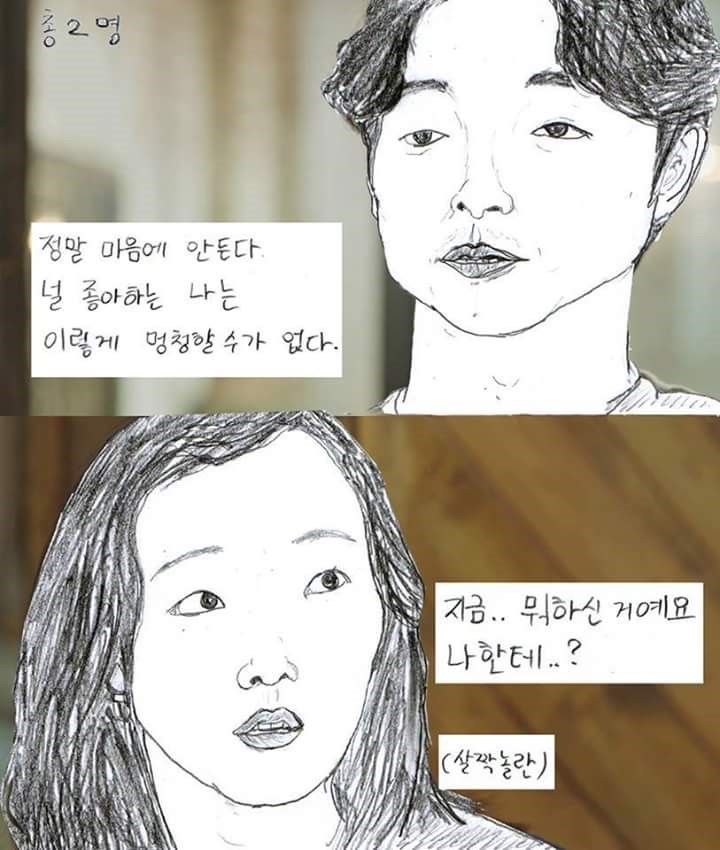 총 2 명
정말 마음에 안든다.
널 좋아하는 나는
이렇게 멍청할 수가 없다.
지금.. 뭐하신 거예요
나한테..?
(살짝놀란)